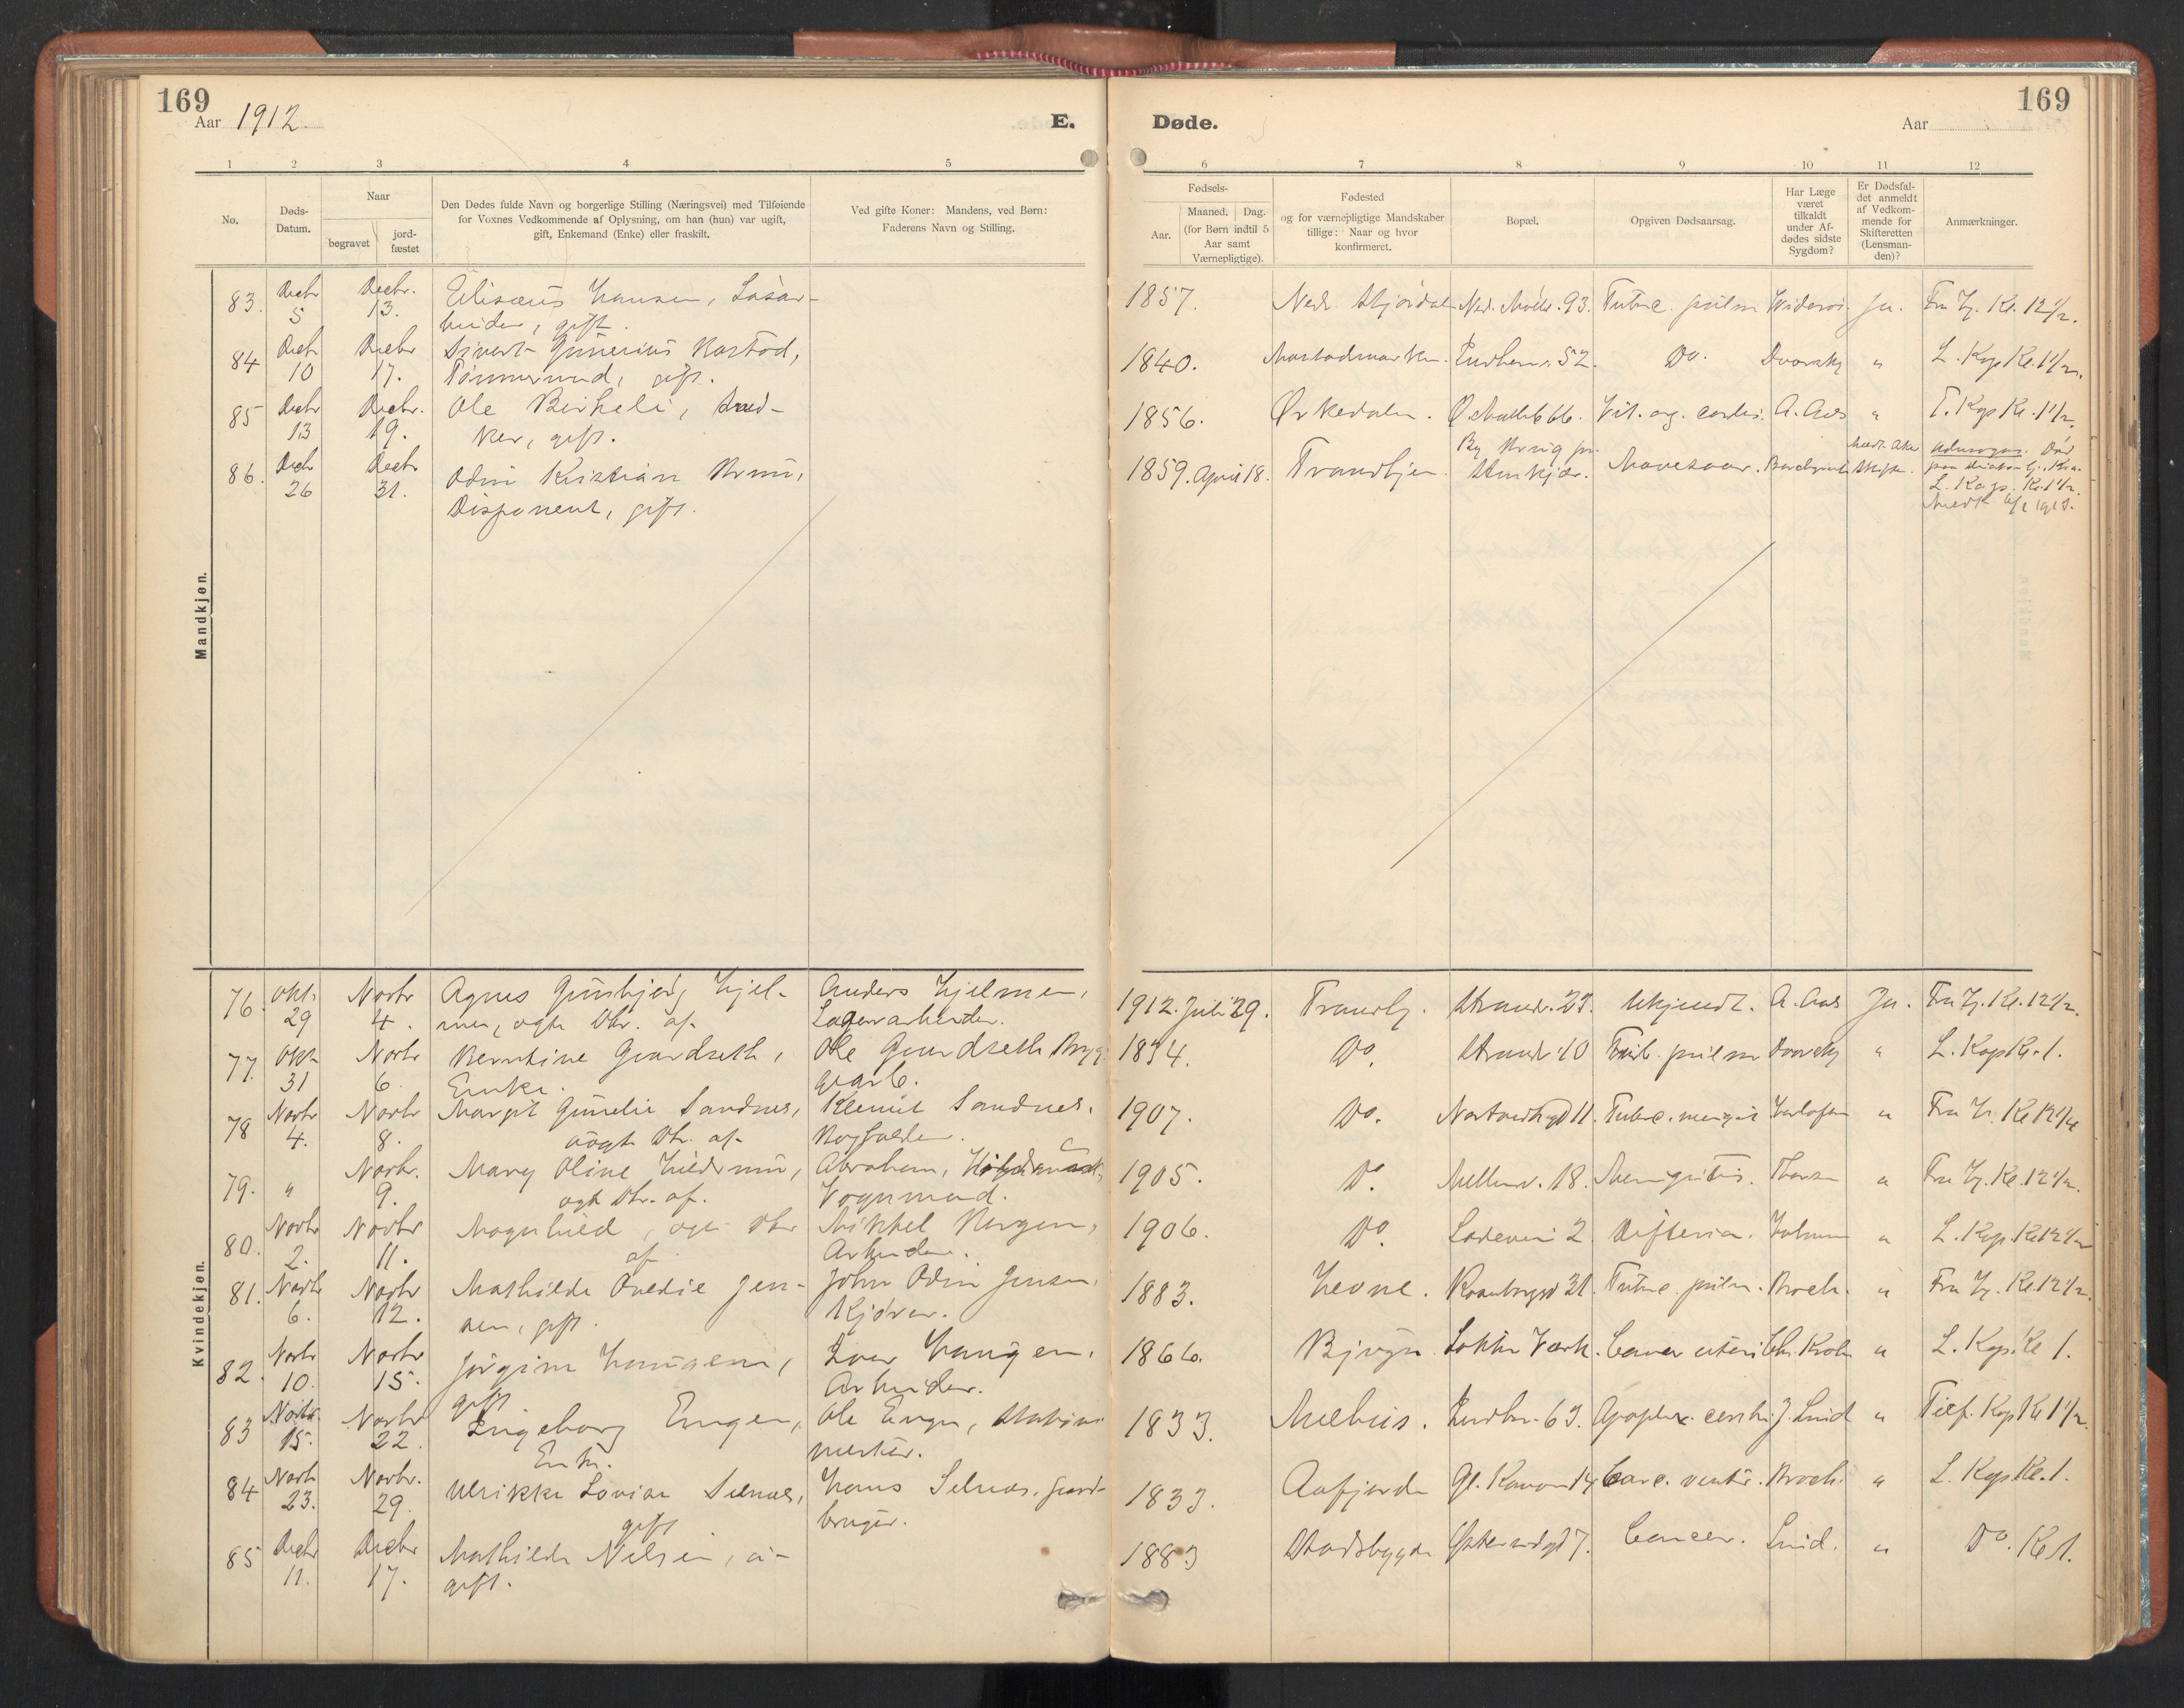 169
Aar 1912.
E.
Døde.
Aar
169
1 2 3 4 5 6 7 8 9 10 11 12
No.
Døds-
Datum.
Naar
begravet
jord-
fæstet
Den Dødes fulde Navn og borgerlige Stilling (Næringsvei) med Tilføiende
for Voxnes Vedkommende af Oplysning, om han (hun) var ugift,
gift, Enkemand (Enke) eller fraskilt.
Ved gifte Koner: Mandens, ved Børn:
Faderens Navn og Stilling.
Fødsels-
Aar.
Maaned. Dag.
(for Børn indtil 5
Aar samt
Værnepligtige).
Fødested
og for værnepligtige Mandskaber
tillige: Naar og hvor
konfirmeret.
Bopæl.
Opgiven Dødsaarsag.
Har Læge
været
tilkaldt
under Af-
dødes sidste
Sygdom?
Er Dødsfal-
det anmeldt
af Vedkom-
mende for
Skifteretten
(Lensman-
den)?
Anmærkninger.
Mandkjøn.
83. Decbr 5 Decbr. 13. Elisæus Hansen, Løsar-
beider, gift. 1857. Nedr. Stjørdal Ned. Møllb. 93. Tuberc. pulm Widerøe. Ja. Fra Hj. Kl. 12 1/2.
84 Decbr 10 Decbr 17. Sivert Gunerius Rostad,
Tømmermand, gift. 1840. Mostadmarken. Lndhem. 52. Do. Dvorsky " L. Kap Kl. 1 1/2.
85 Decbr 13 Decbr. 19. Ole Birkeli, Sned-
ker, gift. 1856. Ørkedalen. Ø. Møllb 66. Vit. org. cordis. A. Aas " T. Kap Kl. 1 1/2.
86. Decbr 26 Decbr 31. Odin Kristian Brun,
Disponent, gift. 1859. April 18. Trondhjem. By Brug pr.
Stenkjær. Mavesaar. L. Kap. Kl. 1 1/2.
Kvindekjøn.
76. Okt. 29 Novbr 4. Agnes Gunbjørg Hjel-
men, ægte Dtr. af Anders Hjelmen,
Lagerarbeider. 1912. Juli 29. Trondhj. Strandv. 23. Ukjendt. A. Aas Ja. Fra Hj. Kl. 12 1/2.
77. Okt 31 Novbr 6. Berntine Grundseth,
Enke. Ole Grundseth Brygg
gearb. 1834. Do. Strandv. 10 Tub. pulm Dvorsky " L. Kap Kl. 1.
78 Novbr 4. Novbr 8. Margit Gunelie Sandnes,
uægte Dtr. af Klemet Sandnes,
1907. Do. Tuberc. mening " Fra Hj. Kl 12 1/2
79. " Novbr. 9. Mary Oline Hildrum,
ægte Dtr. af. Abraham,
Vognmand. 1905. Do. Mellemv. 18. Meningitis. " Fra Hj. Kl. 12 1/2.
80. Novbr 2. Novbr 11. Magnhild, ægte Dtr
af Mikkel Bergen,
Arbeider. 1906. Do. Ladevei 2. Difteria. " L. Kap. Kl 12 1/2
81. Novbr 6. Novbr 12. Mathilde Ovedie Jen-
sen, gift. John Odin Jensen,
Kjører. 1883. Hevne. Tuberc. pulm. Broch. " Fra Hj. Kl. 12 1/2.
82. Novbr 10. Novbr 15. Jørgine Haugen,
gift Iver Haugen,
Arbeider. 1866. Bjugn. Løkken Værk. Cancer uteri Chr. Krohn " L. Kap. Kl 1.
83 Novbr. 15. Novbr 22. Ingeborg Engen,
Enke. Ole Engen, Stations
mester. 1833. Melhus. Lndhem. 63. Apoplex. cerebri. J. Lund " Tilf. Kap Kl 1 1/2.
84 Novbr 23. Novbr. 29. Ulrikke Lovise Selnæs,
gift Hans Selnæs, Gaard-
bruger. 1833. Aafjorden Gl. Kanon 14 Carc. ventr. Broch. " L. Kap Kl. 1.
85 Decbr 11. Decbr 17. Mathilde Nelsen, u-
gift. 1883 Stadsbygden Østersundgd 7. Cancer. Lund. " Do. Kl 1.